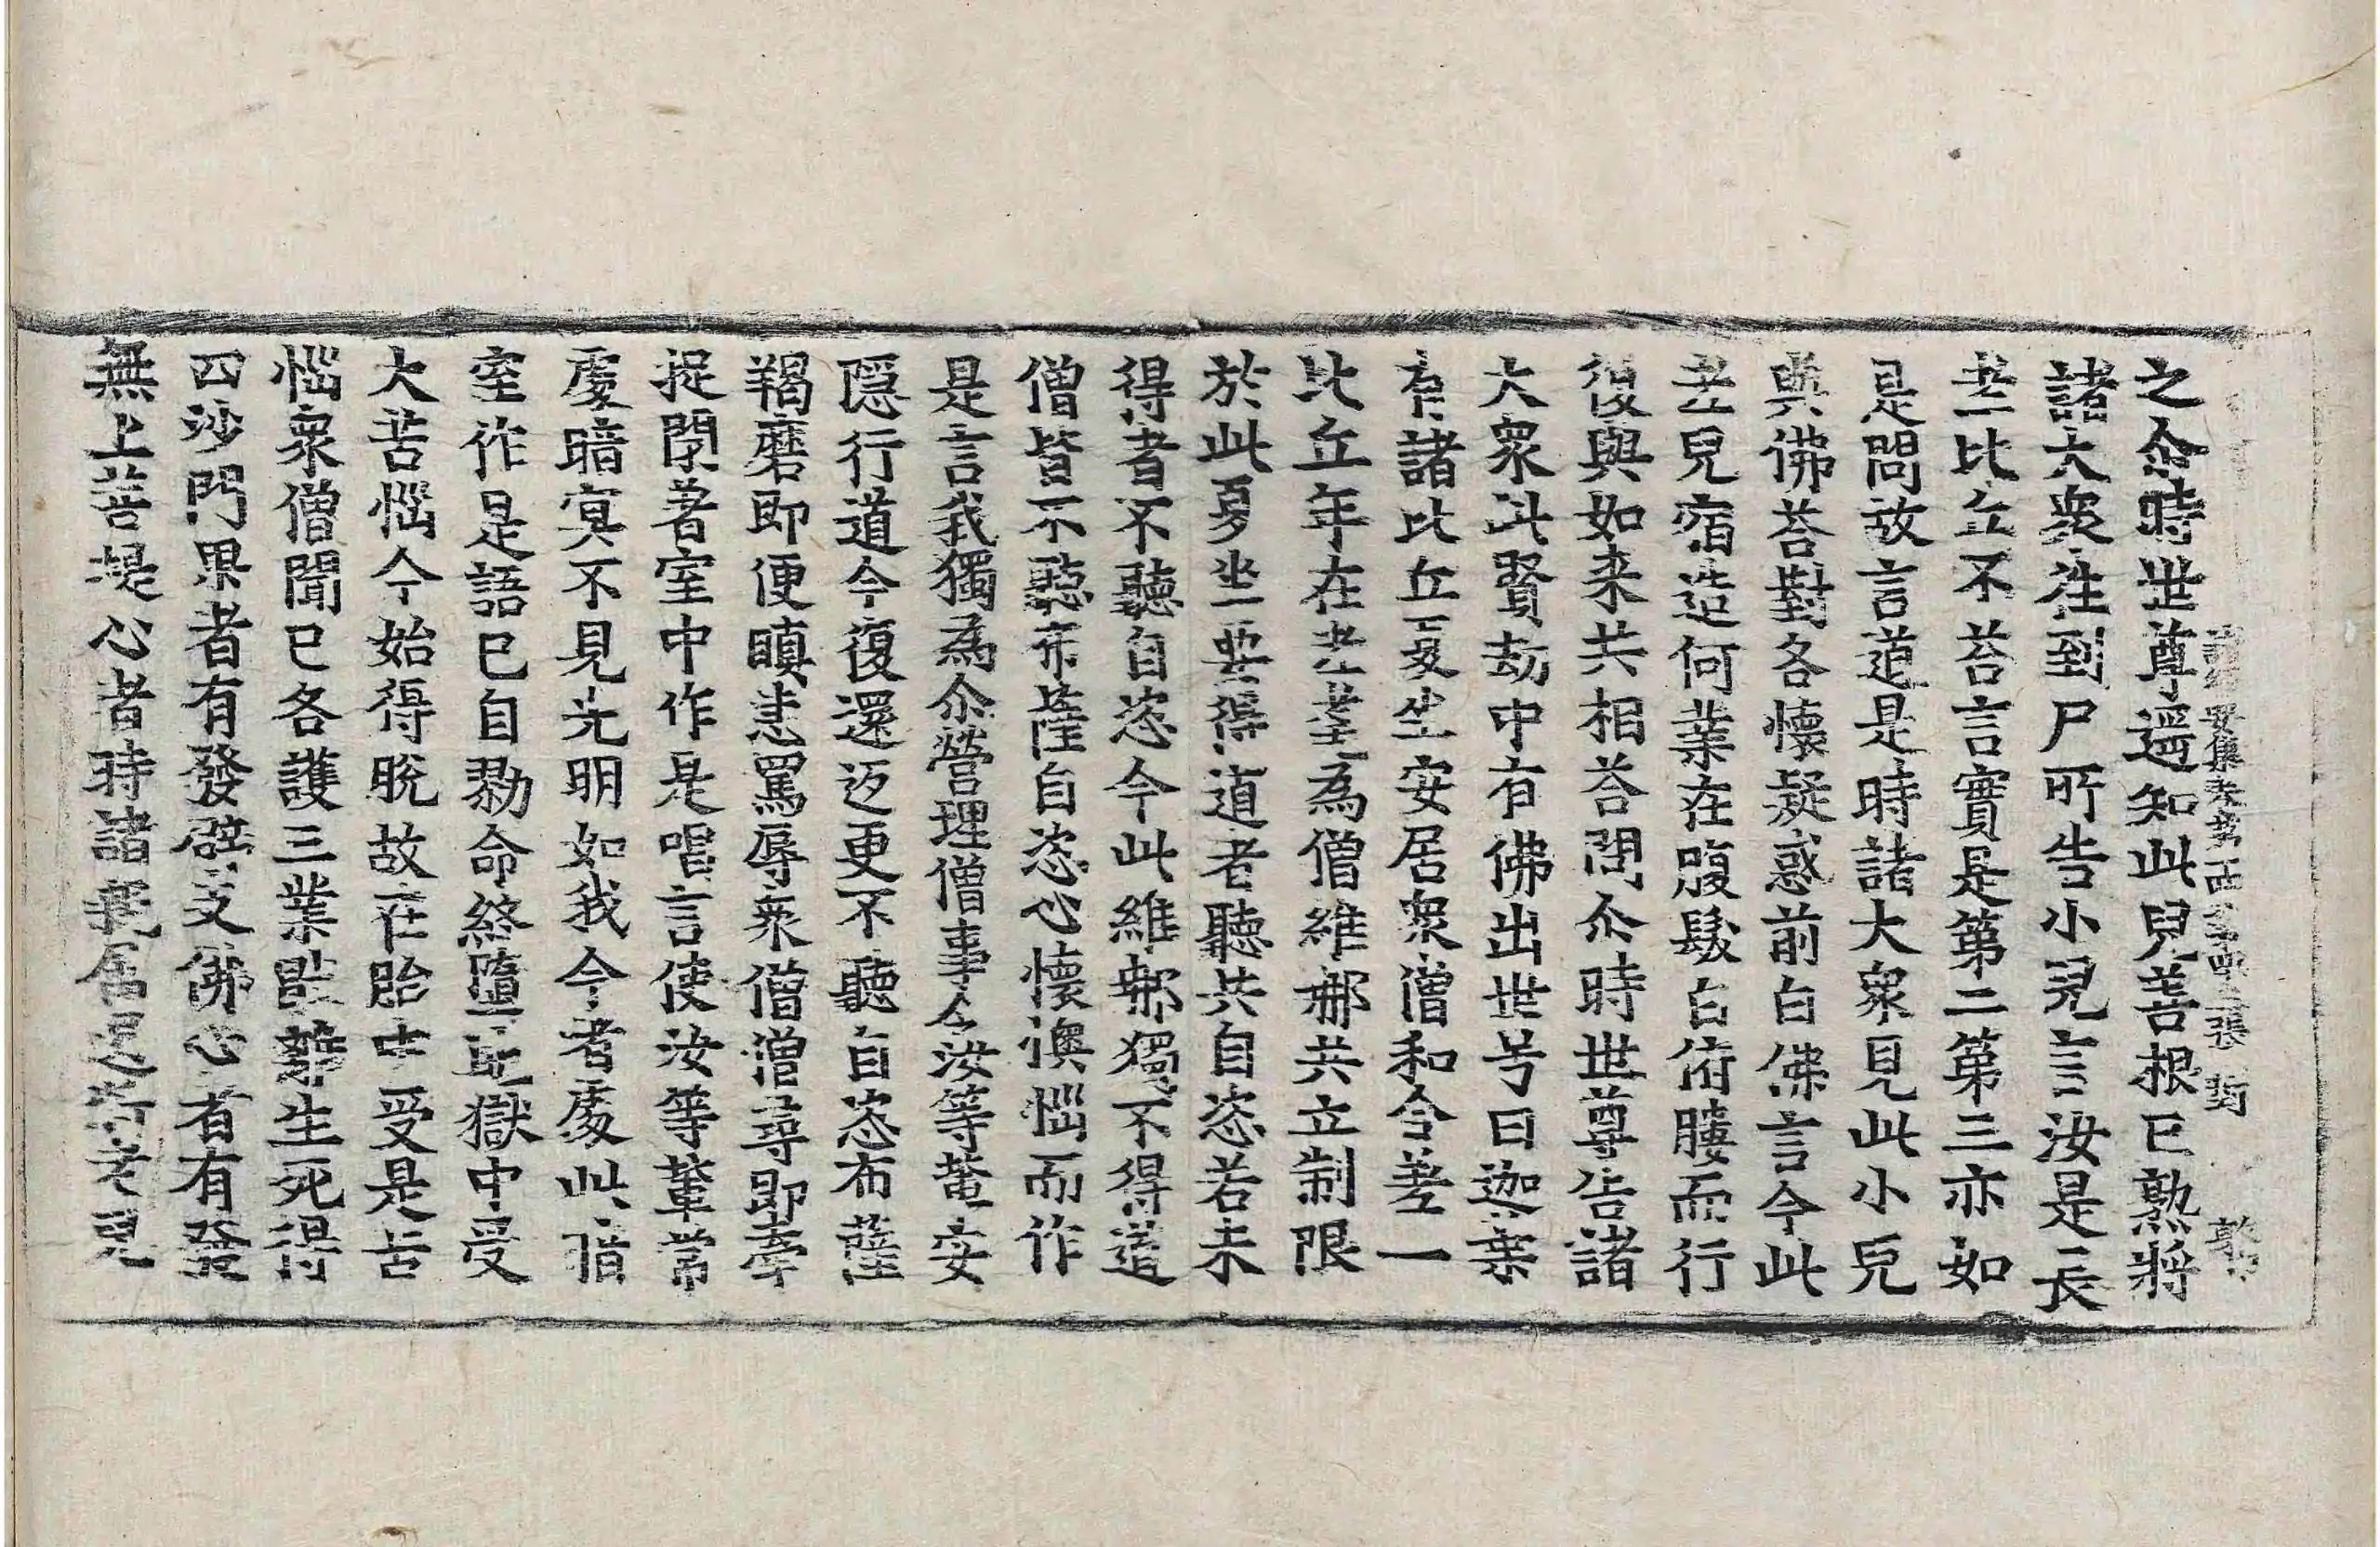 諸經要集卷第四 第三張 對
之尒時世尊逗知此兒善根已熟將
諸大衆往到尸所告小兒言汝是長
老比丘不荅言實是第二第三亦如
是問故言道是時諸大衆見此小兒
與佛荅對各懷疑惑前白佛言今此
老兒宿造何業在腹髮白俯膢而行
復與如来共相荅問尒時世尊告諸
大衆此賢劫中有佛出世号曰迦葉
有諸比丘夏坐安居衆僧和合差一
比丘年在老耄為僧維那共立制限
於此夏坐要得道者聽共自恣若未
得者不聽自恣今此維那獨不得道
僧皆不聽布薩自恣心懷懊惱而作
是言我獨為尒營理僧事令汝等輩安
隠行道今復還返更不聽自恣布薩
羯磨即便瞋恚罵辱衆僧僧尋即牽
捉閉著室中作是唱言使汝等輩常
處暗冥不見光明如我今者處此暗
室作是語已自勠命終墮地獄中受
大苦惱今始得脫故在胎中受是苦
惱衆僧聞已各護三業猒離生死得
四沙門果者有發辟支佛心者有發
無上菩提心者時諸親居還將老兒